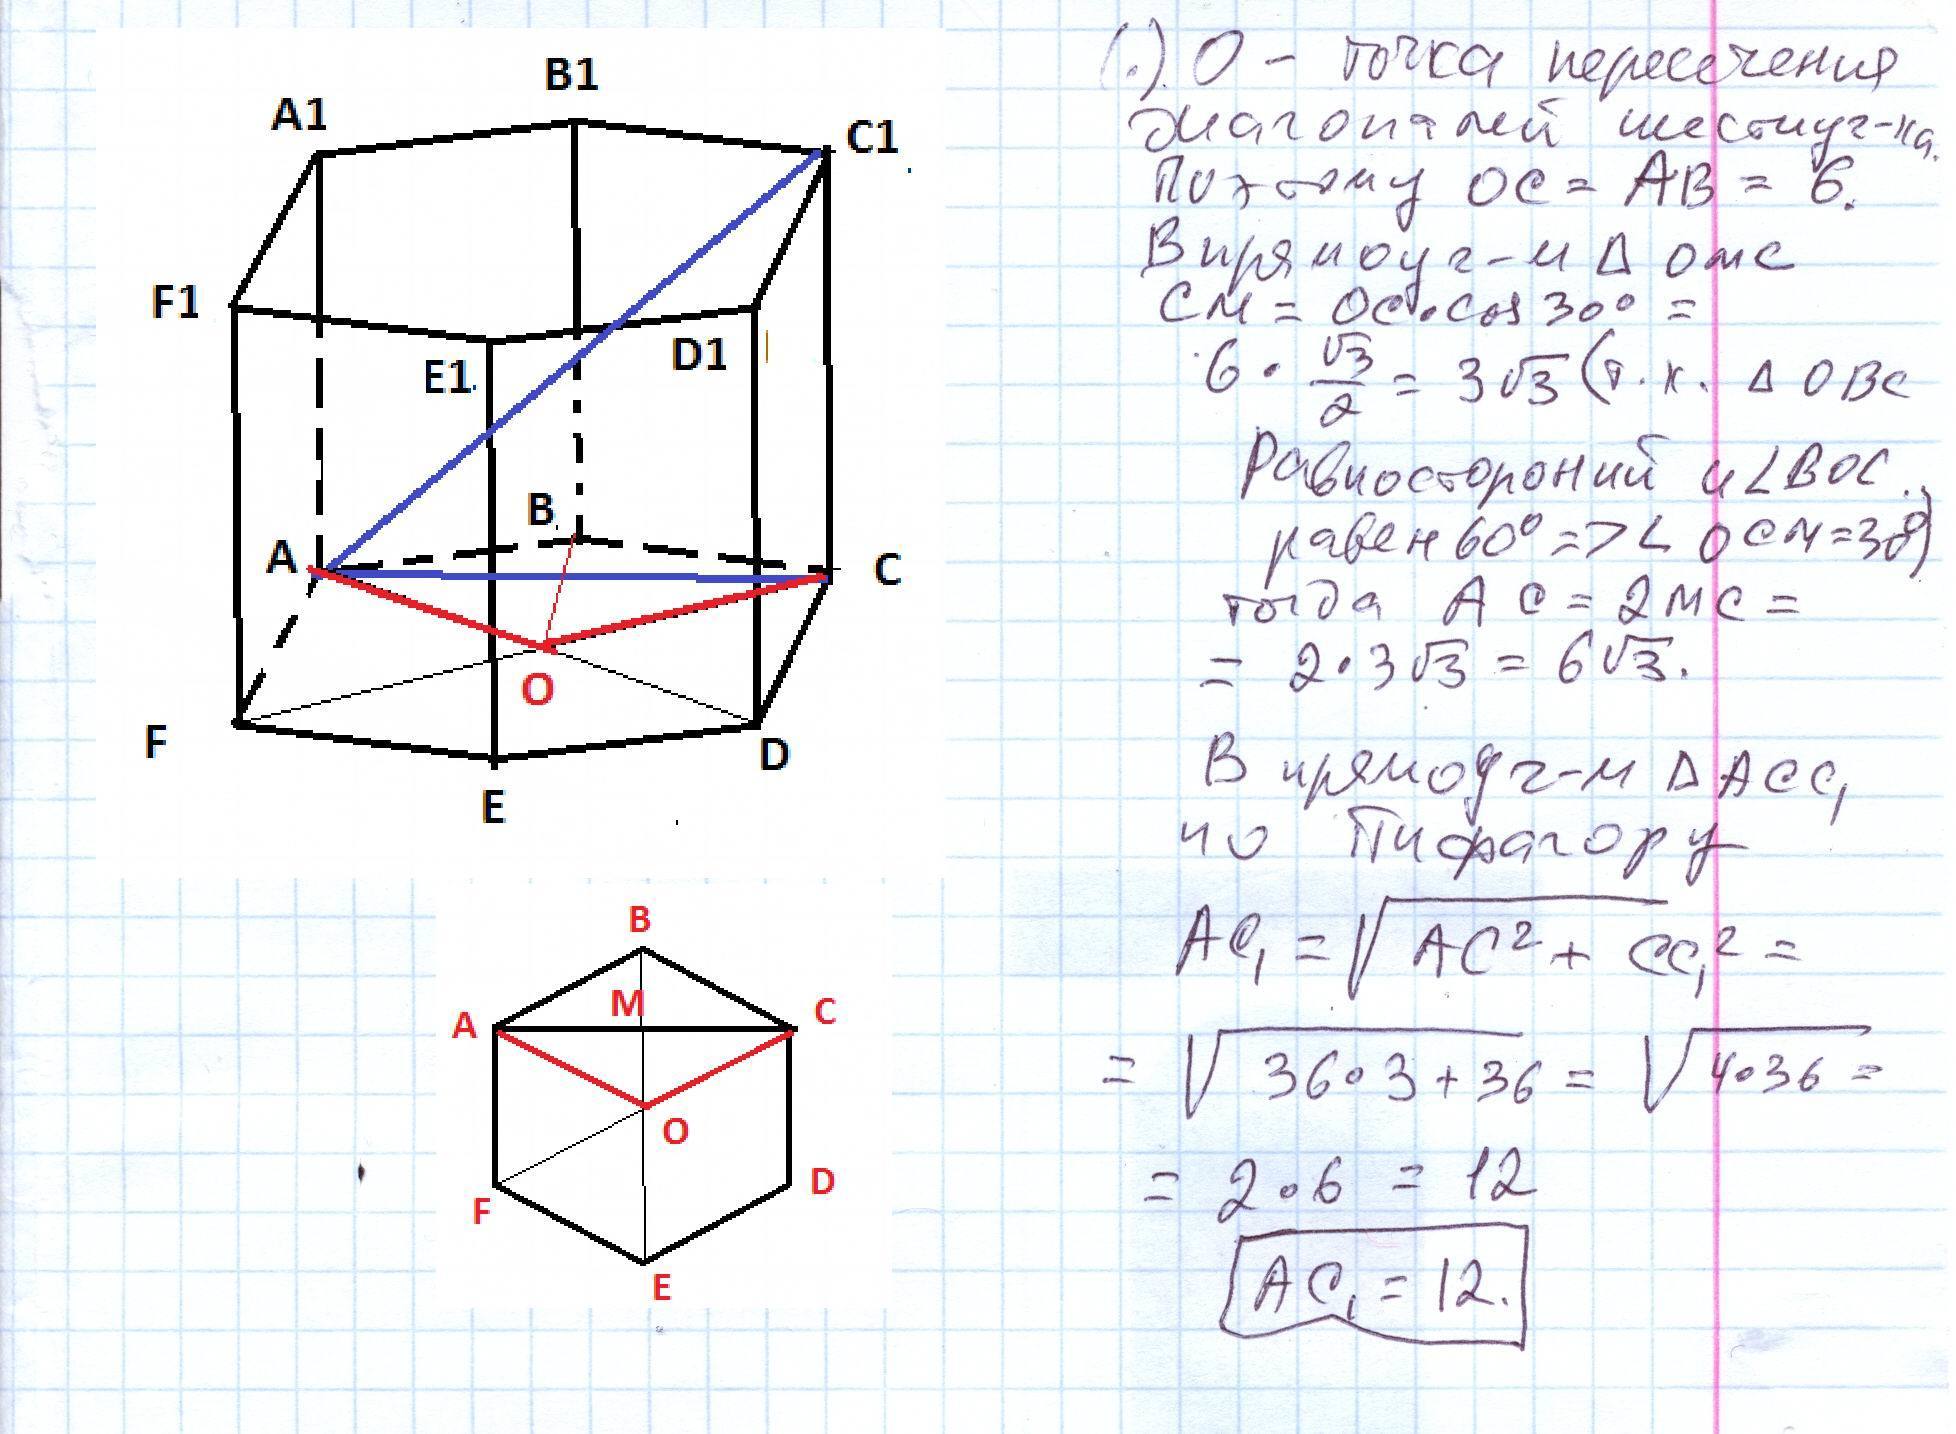 A1
B1
C1
F1
E1
D1
A
B
C
O
F
D
E
B
A
M
C
O
F
D
E
(.) O – точка пересечения
диагоналей шестиуг-ка.
Поэтому OC = AB = 6.
В прямоуг-м Δ OMC
CM = OC • cos 30° =
6 • √3/2 = 3√3 (т.к. Δ OBC
Равностороний и ∠BOC
равен 60° => ∠ OCM = 30°)
тогда AC = 2MC =
= 2 • 3√3 = 6√3.
В прямоуг-м Δ ACC₁
по Пифагору
AC₁ = √(AC² + CC₁²) =
= √(36 • 3 + 36) = √(4 • 36) =
= 2 • 6 = 12
AC₁ = 12.